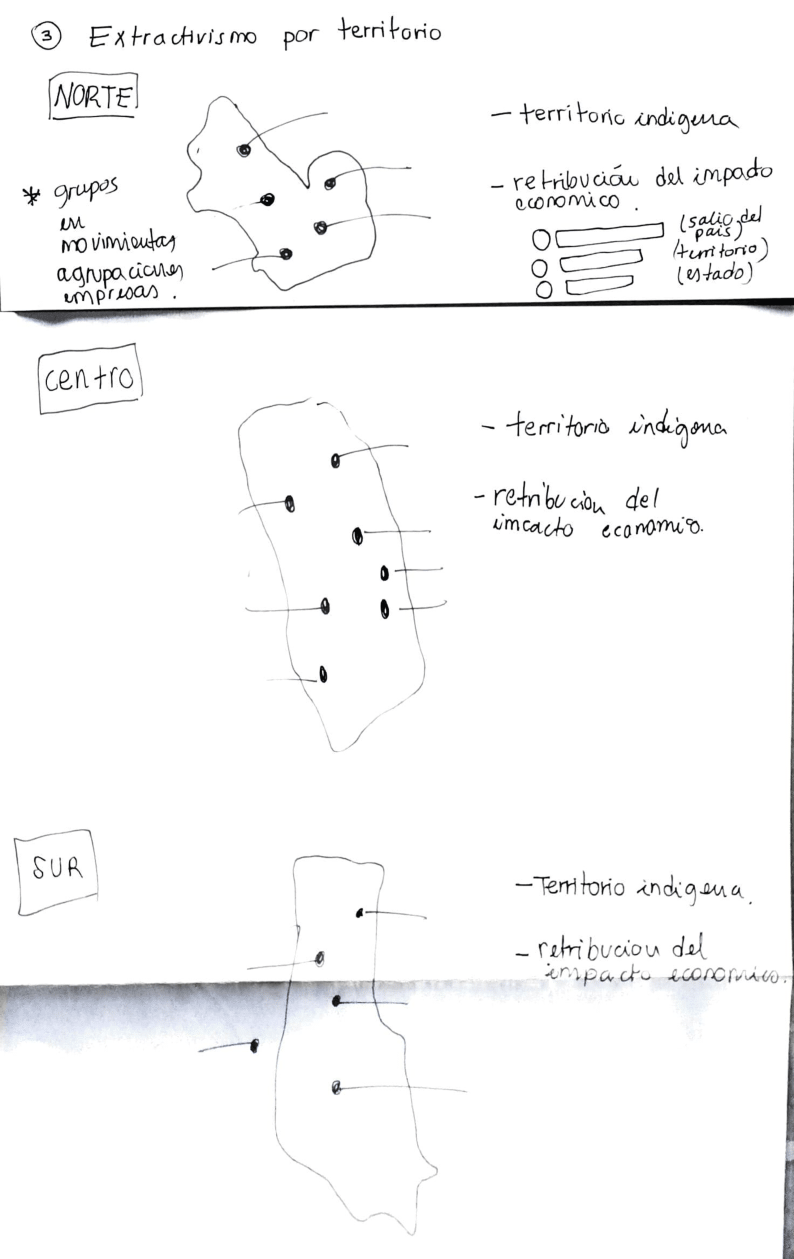 3 Extractivismo por territorio
NORTE
* grupos
en
movimientos
agrupaciones
empresas.
- territorio indigena
- retribución del impacto
economico.
(salio del
país)
(territorio)
(estado)
centro
- territorio indigena
- retribución del
imcacto economico.
SUR
- Territorio indigena.
- retribucion del
impacto economico.